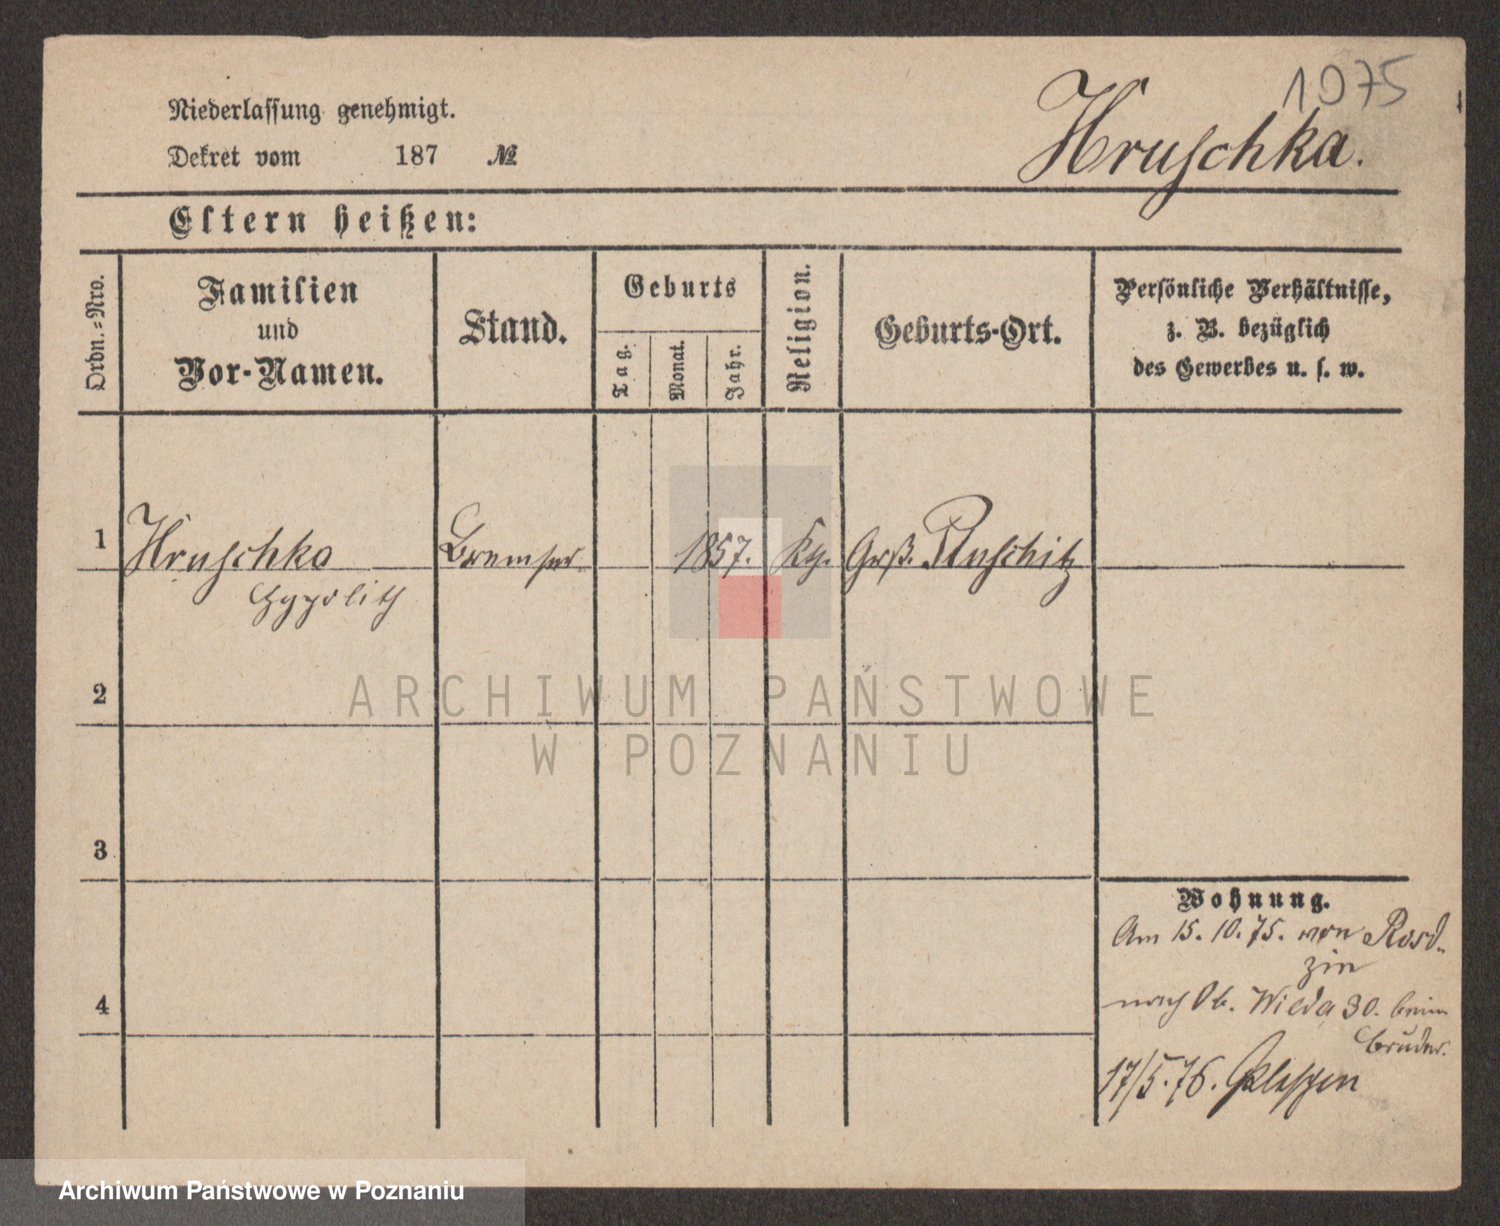 1075
Niederlassung genehmigt.
Hruschka.
Dekret vom 187 №
Eltern heißen:
Ordn.=Nro.
Familien
und
Vor-Namen.
Stand.
Geburts
Tag.
Monat.
Jahr.
Religion.
Geburts-Ort.
Persönliche Verhältnisse,
z. B. bezüglich
des Gewerbes u. s. w.
1 Hruschka Bremser 1857. Kg. Grß. Pluschitz
Hyppolith
2
3
4
Wohnung.
Am 15. 10. 75. von Rosd-
zin
nach Ob. Wilda 30. beim
Bruder.
17/5. 76.
ARCHIWUM PAŃSTWOWE
W POZNANIU
Archiwum Państwowe w Poznaniu